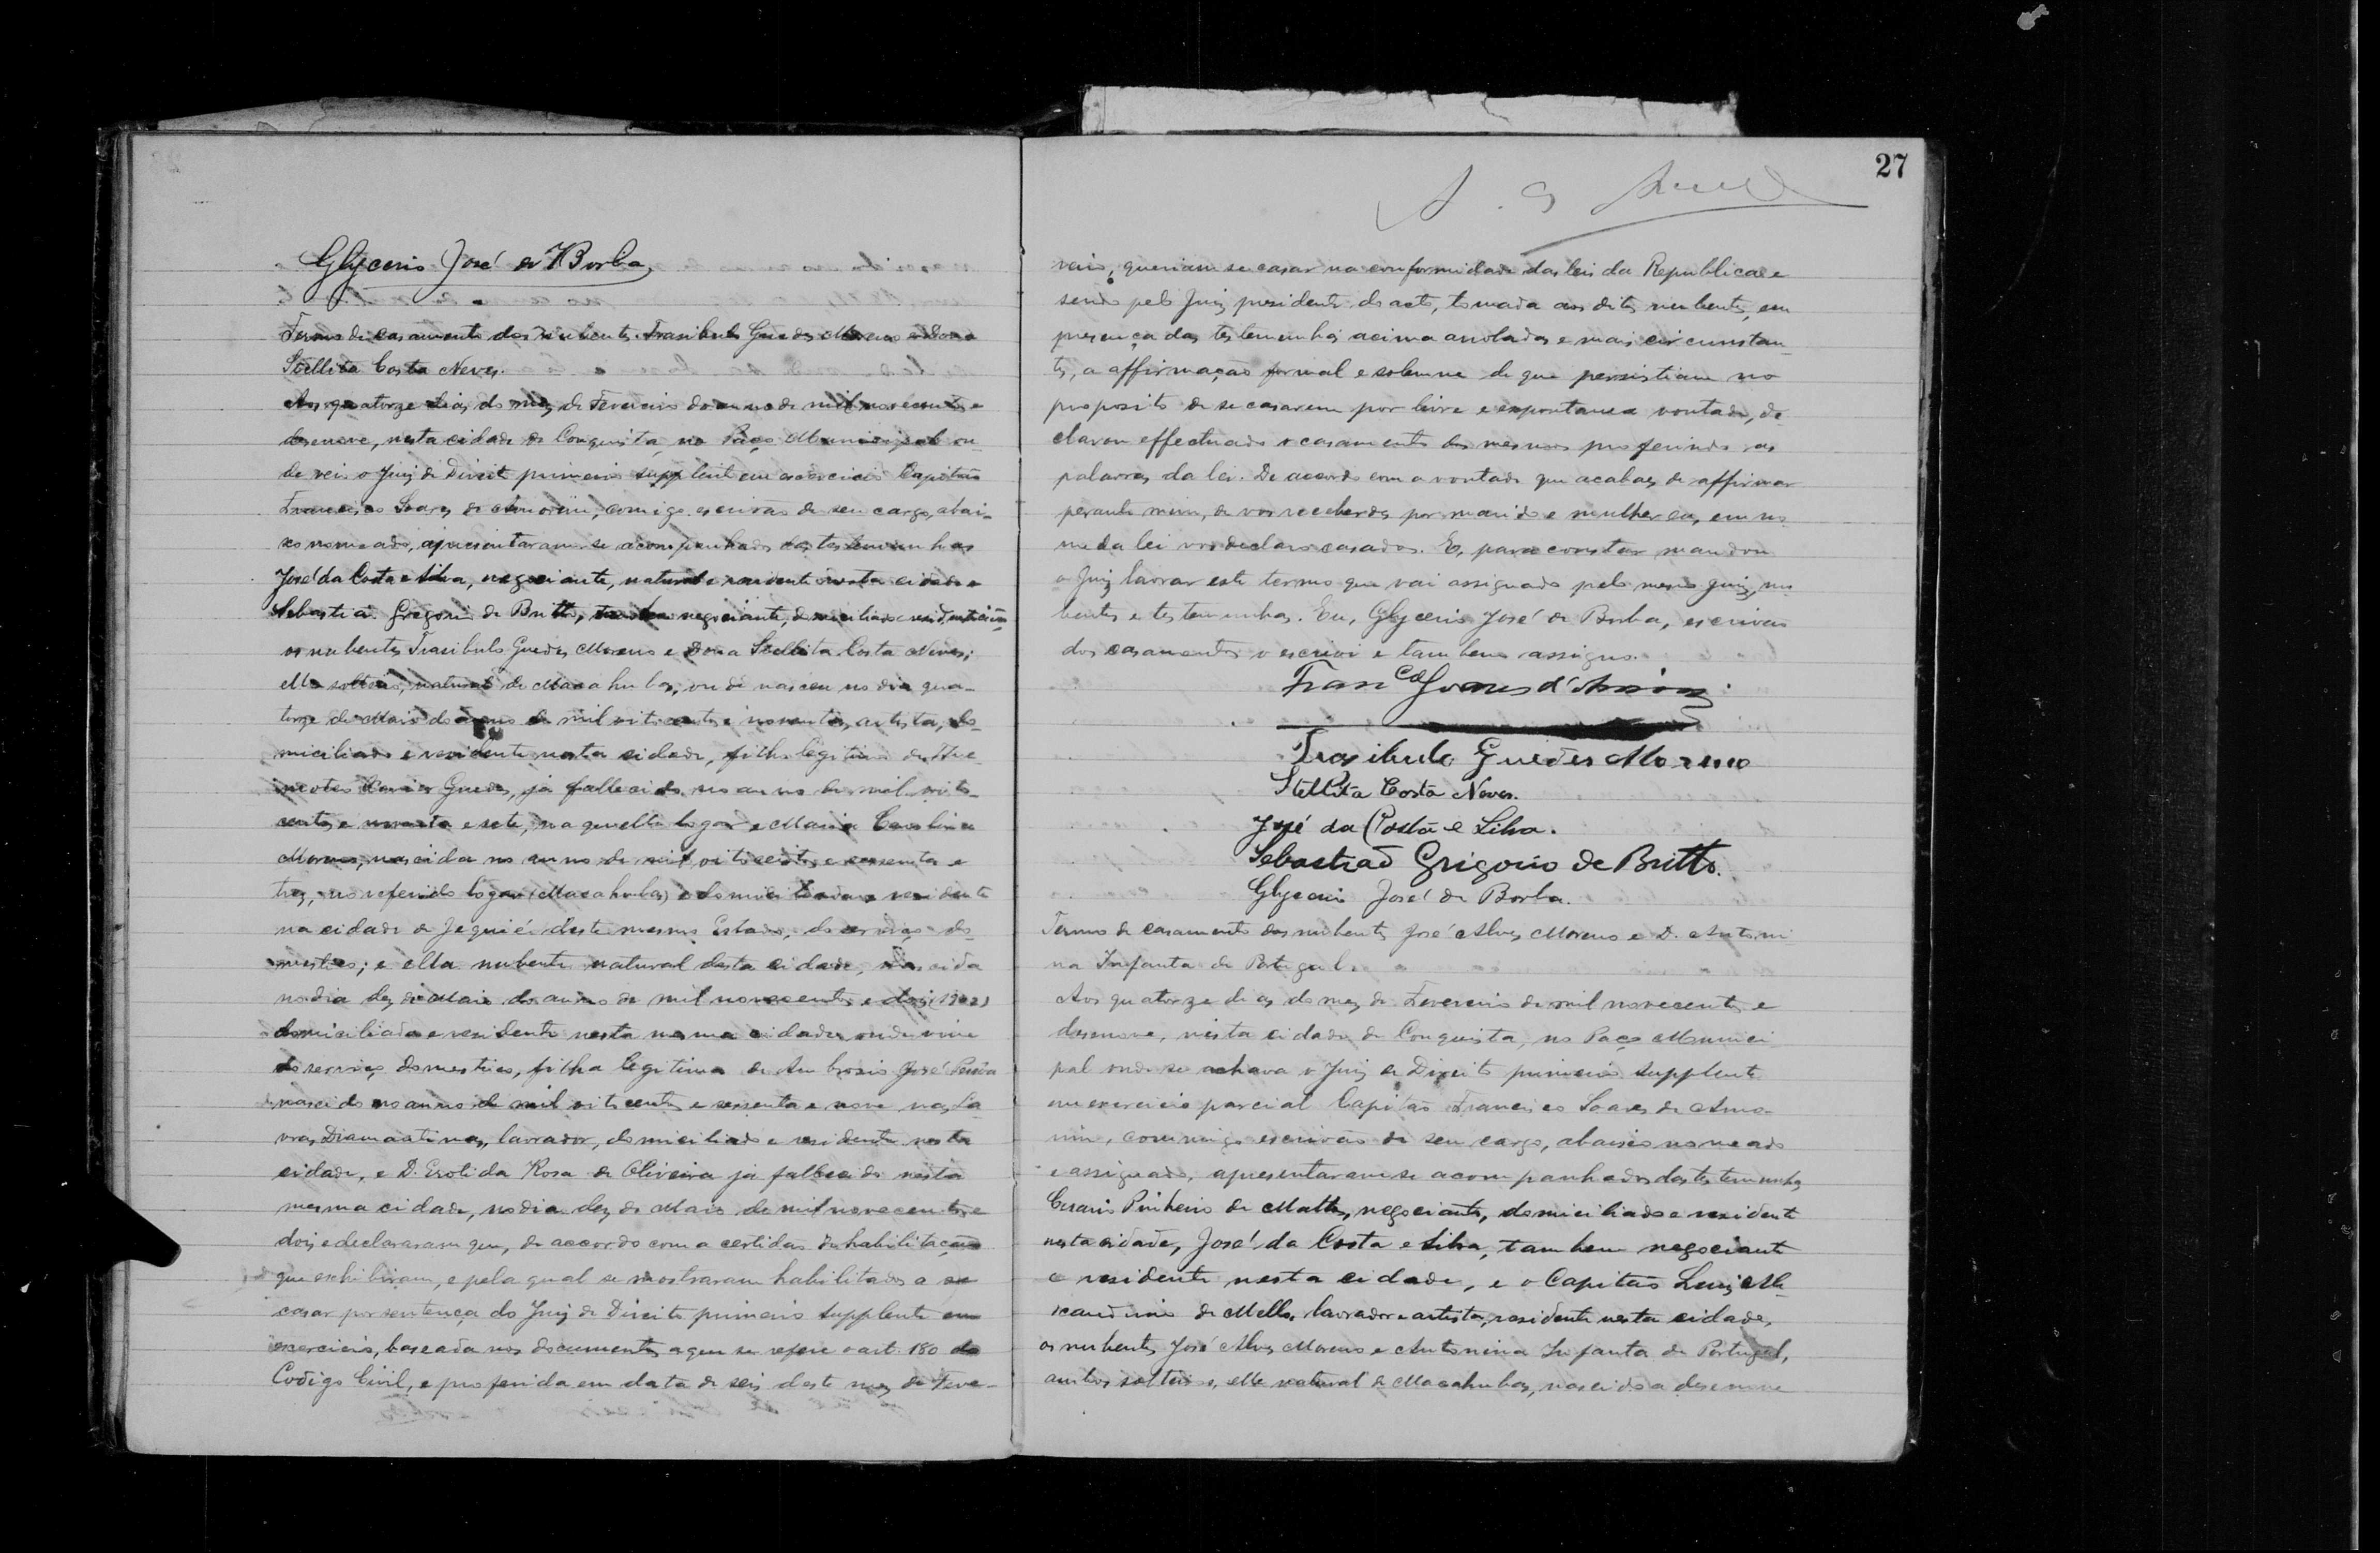 Glycerio José de Borba
Termo de casamento dos nubentes Trasibulo Guedes Moreno e Dona
Stellita Costa Neves.
Aos quatorze dias do mez de Fevereiro do anno de mil novecentos e
desenove, nesta cidade de Conquista, no Paço Municipal on-
de veio o Juiz de Direito primeiro supplente em exercicio Capitão
Francisco Soares de Amorim, comigo escrivão de seu cargo, abai-
xo nomeado, apresentaram-se acompanhados das testemunhas
José da Costa e Silva, negociante, natural e residente nesta cidade e
Sebastião Gregorio de Britto, negociante, domiciliado e residente
os nubentes Trasibulo Guedes Moreno e Dona Stellita Costa Neves;
elle solteiro, natural de Macahubas, onde nasceu no dia qua-
torze de Maio do anno de mil oitocentos e noventa, artista, do-
miciliado e residente nesta cidade, filho legitimo de
Guedes, já fallecido no anno de mil oito-
centos e noventa e sete, naquelle logar e Maria Carolina
Moreno, nascida no anno de mil oitocentos e sessenta e
trez, no referido logar (Macahubas) e domiciliada e residente
na cidade de Jequié, deste mesmo Estado, do serviço do-
mestico; e ella nubente natural desta cidade, nascida
no dia dez de Maio do anno de mil novecentos e dois (1902)
domiciliada e residente nesta mesma cidade, onde vive
do serviço domestico, filha legitima de Ambrosio José
nascido no anno de mil oitocentos e sessenta e nove nas La-
vras Diamantinas, lavrador, domiciliado e residente nesta
cidade, e D. Erotida Rosa de Oliveira já fallecida nesta
mesma cidade, no dia dez de Maio de mil novecentos e
dois, e declararam que, de accordo com a certidão de habilitação
que exhibiram, e pela qual se mostraram habilitados a se
casar por sentença do Juiz de Direito primeiro supplente em
exercicio, baseada nos documentos a que se refere o art. 180 do
Codigo Civil, e proferida em data de seis deste mez de Feve-
27
reiro, queriam se casar na conformidade das leis da Republica e
sendo pelo Juiz presidente do acto, tomada aos ditos nubentes, em
presença das testemunhas acima arroladas e mais circumstan-
tes, a affirmação formal e solemne de que persistiam no
proposito de se casarem por livre e expontanea vontade, de
clarou effectuado o casamento dos mesmos proferindo as
palavras da lei. De accordo com a vontade que acabaes de affirmar
perante mim, de vos receberdes por marido e mulher eu, em no
me da lei vos declaro casados. E, para constar mandou
o Juiz lavrar este termo que vai assignado pelo mesmo Juiz, nu
bentes e testemunhas. Eu, Glycerio José de Borba, escrivão
dos casamentos o escrevi e tambem assigno.
Fran.co Soares d'Amorim
Trasibulo Guedes Moreno
Stellita Costa Neves.
José da Costa e Silva.
Sebastião Grigorio de Britto.
Glycerio José de Borba.
Termo de casamento dos nubentes José Alves Moreno e D. Antoni
na Infanta de Portugal.
Aos quatorze dias do mez de Fevereiro de mil novecentos e
desenove, nesta cidade de Conquista, no Paço Munici
pal onde se achava o Juiz de Direito primeiro supplente
em exercicio parcial Capitão Francisco Soares de Amo-
rim, commigo escrivão de seu cargo, abaixo nomeado
e assignado, apresentaram-se acompanhados das testemunhas
Cesario Pinheiro de Mattos, negociante, domiciliado e residente
nesta cidade, José da Costa e Silva, tambem negociante
e residente nesta cidade, e o Capitão Luiz
de Mello, lavrador e artista, residente nesta cidade,
os nubentes José Alves Moreno e Antonina Infanta de Portugal,
ambos solteiros, elle natural de Macahubas, nascido a desenove